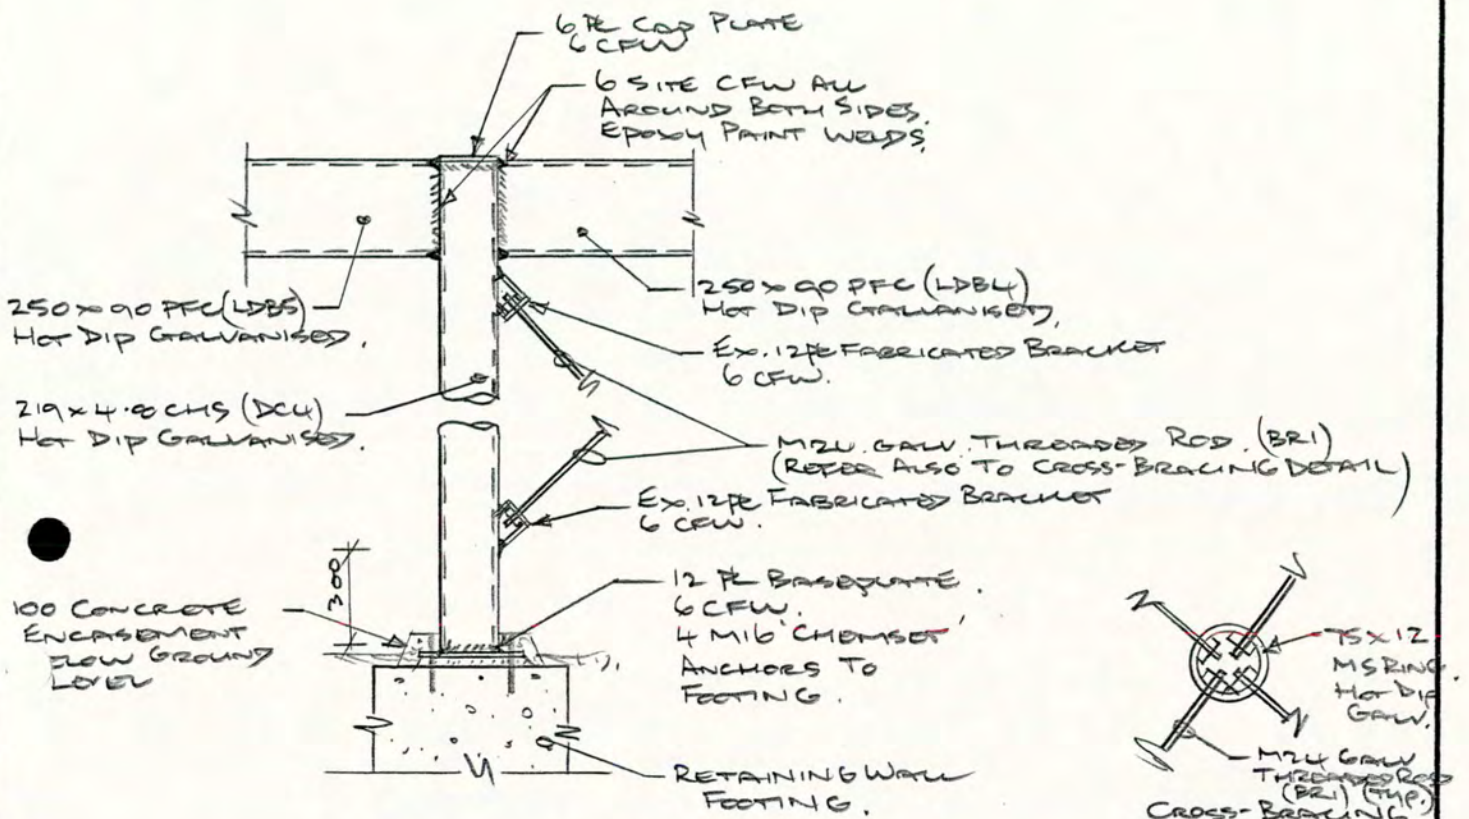 6 PL CAP PLATE
6 CFW
6 SITE CFW ALL
AROUND BOTH SIDES.
EPOXY PAINT WELDS.
250 x 90 PFC (LDB5)
HOT DIP GALVANISED.
250 x 90 PFC (LDB4)
HOT DIP GALVANISED.
EX. 12 PL FABRICATED BRACKET
6 CFW.
219 x 4.8 CHS (DC4)
HOT DIP GALVANISED.
M24 GALV. THREADED ROD. (BR1)
(REFER ALSO TO CROSS-BRACING DETAIL)
EX. 12 PL FABRICATED BRACKET
6 CFW.
300
100 CONCRETE
ENCASEMENT
GROUND
LEVEL
12 PL BASEPLATE.
6 CFW.
4 M16 'CHEMSET'
ANCHORS TO
FOOTING.
RETAINING WALL
FOOTING.
75 x 12
MS RING.
HOT DIP
GALV.
M24 GALV
THREADED ROD
(BR1) (TYP.)
CROSS-BRACING